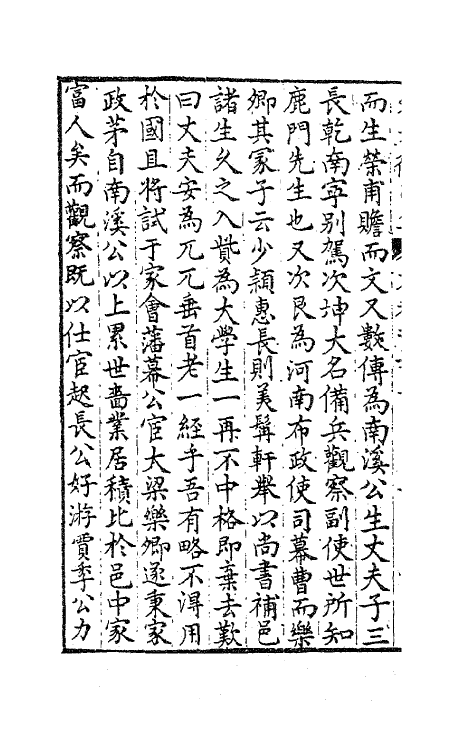 而生榮甫贍而文又數傳為南溪公生丈夫子三
長乾南寧别駕次坤大名備兵觀察副使世所知
鹿門先生也又次艮為河南布政使司幕曹而樂
卿其冢子云少穎惠長則美髯軒舉以尚書補邑
諸生久之入貲為大學生一再不中格即棄去歎
曰丈夫安為兀兀垂首老一經乎吾有略不淂用
於國且將試于家會藩幕公宦大梁樂卿遂秉家
政茅自南溪公以上累世嗇業居積比於邑中家
富人矣而觀察既以仕宦起長公好游賈季公力